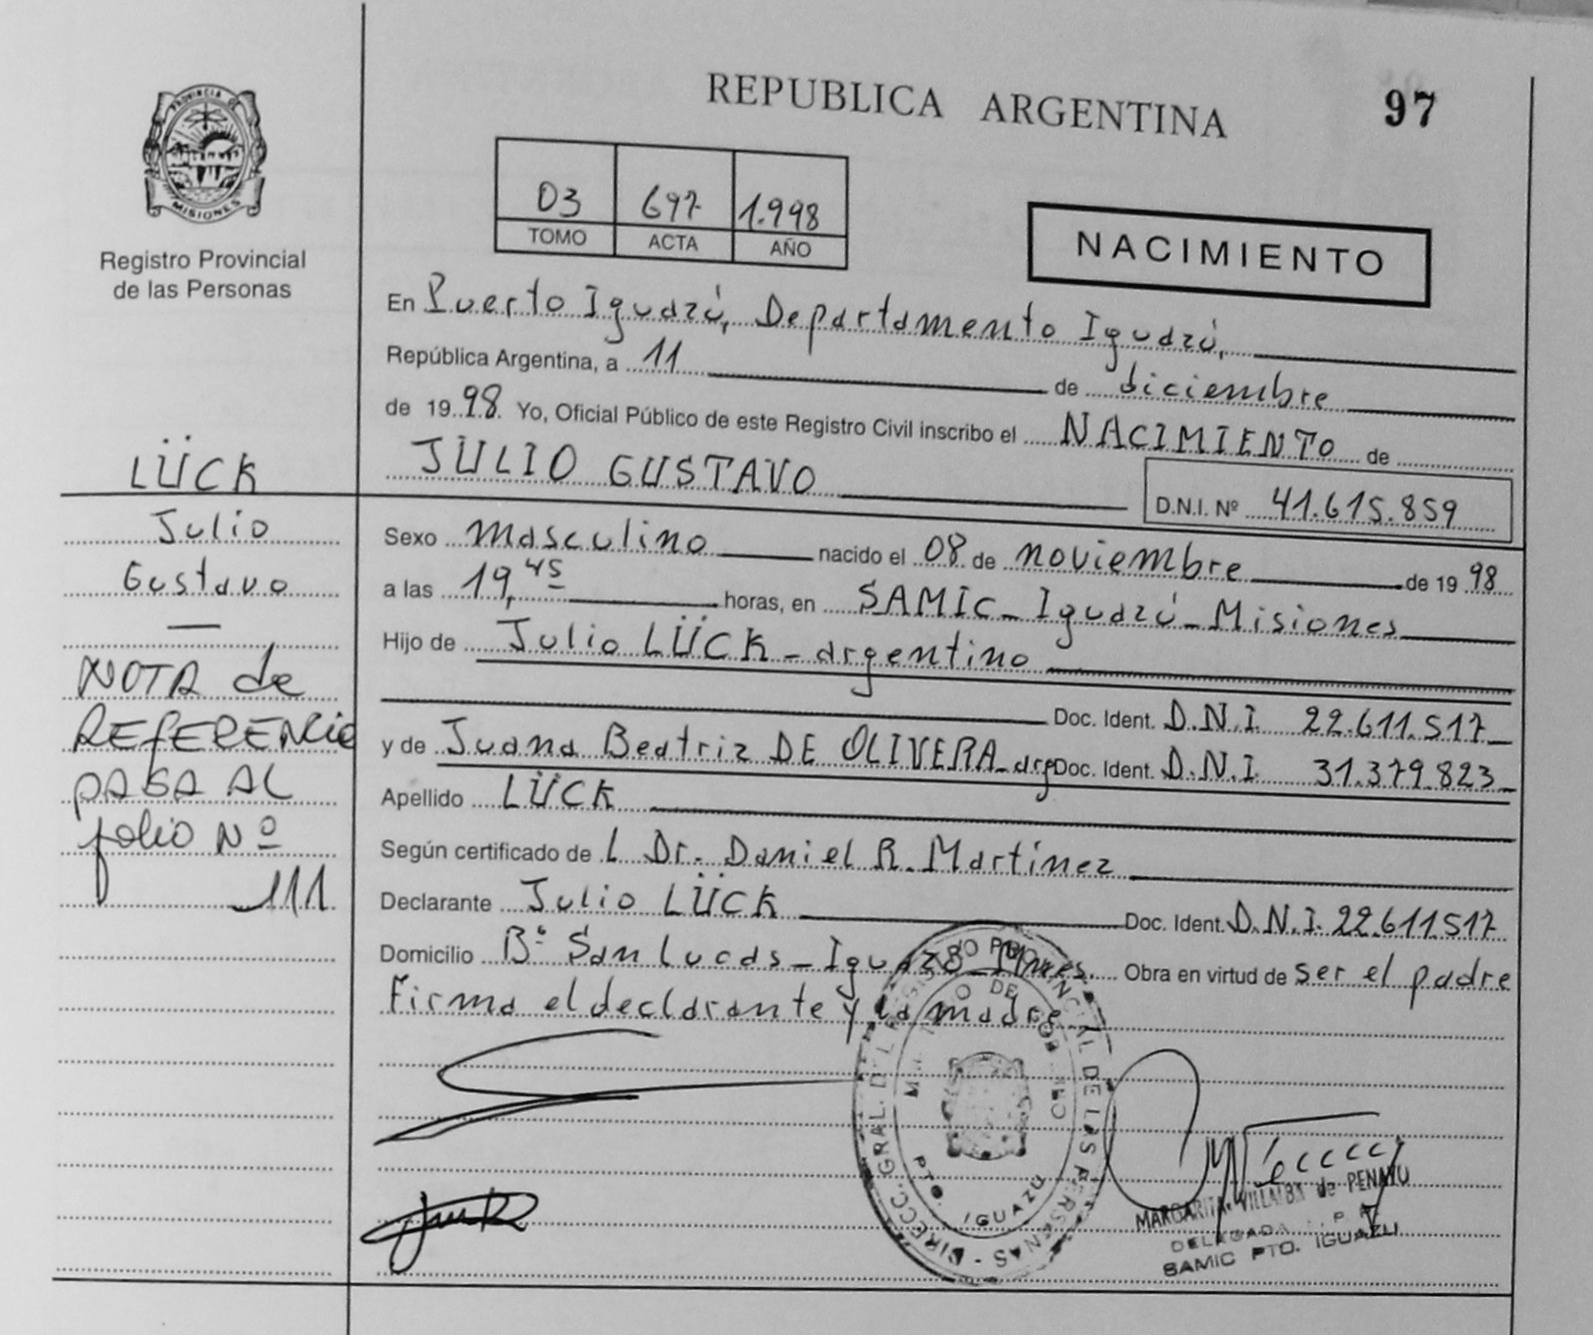 REPUBLICA ARGENTINA
97
PROVINCIA DE
MISIONES
Registro Provincial
de las Personas
03 697 1.998
TOMO ACTA AÑO
NACIMIENTO
En Puerto Iguazú, Departamento Iguazú,
República Argentina, a 11 de diciembre
de 1998 Yo, Oficial Público de este Registro Civil inscribo el NACIMIENTO de
JULIO GUSTAVO
D.N.I. Nº 41.615.859
Sexo masculino nacido el 08 de noviembre de 1998
a las 19,45 horas, en SAMIC - Iguazú - Misiones
Hijo de Julio LÜCK - argentino
Doc. Ident. D.N.I. 22.611.517
y de Juana Beatriz DE OLIVERA - arg Doc. Ident. D.N.I. 31.379.823
Apellido LÜCK
Según certificado del Dr. Daniel R. Martínez
Declarante Julio LÜCK Doc. Ident. D.N.I. 22.611517
Domicilio Bº San Lucas - Iguazú - Mnes. Obra en virtud de ser el padre
Firma el declarante y la madre
LÜCK
Julio
Gustavo
—
NOTA de
REFERENCIA
PASA AL
folio Nº
111
DIRECC. GRAL. DEL REGISTRO PROVINCIAL DE LAS PERSONAS
MINISTERIO DE GOBIERNO
PTO. IGUAZÚ
MARGARITA VILLALBA de PENAYO
DELEGADA
SAMIC PTO. IGUAZU